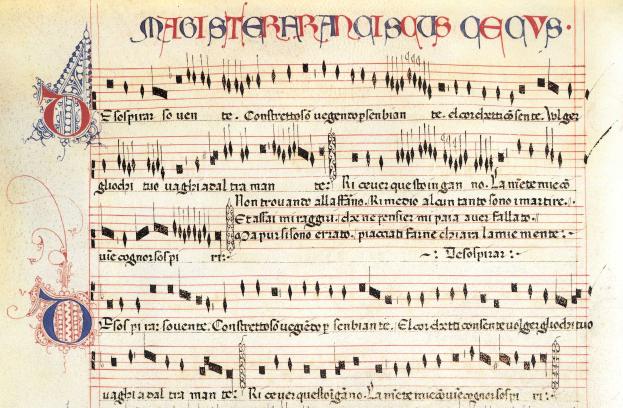 MAGISTER FRANCISCUS CECUS ·
De sospirar so ven te . Constretto sō veg ento p senbian te . el cor ch etti cō sen te . Volger
gliochi tuo vaghi ad al tra man te : Ri cever questo in gan no . La m
Non trovando all affāno . Ri medio alcun tanto sono i martire .
Et assai mi raggiu . che ne pensier mi para aver fallato .
Ma pur si sono errato . piacciati farne chiara la mie mente :
co gnor sospi ri : De sospirar :
De sospi rar sovente . Constretto sō p senbian te . El cor ch etti con sen te volger gliochi tuo
vaghi ad al tra man te : Ri ce ver questo ī gāno . La sospi ri :